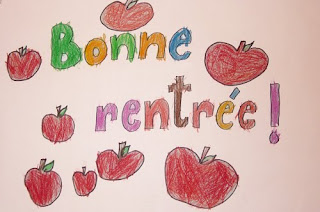 Bonne
rentrée!